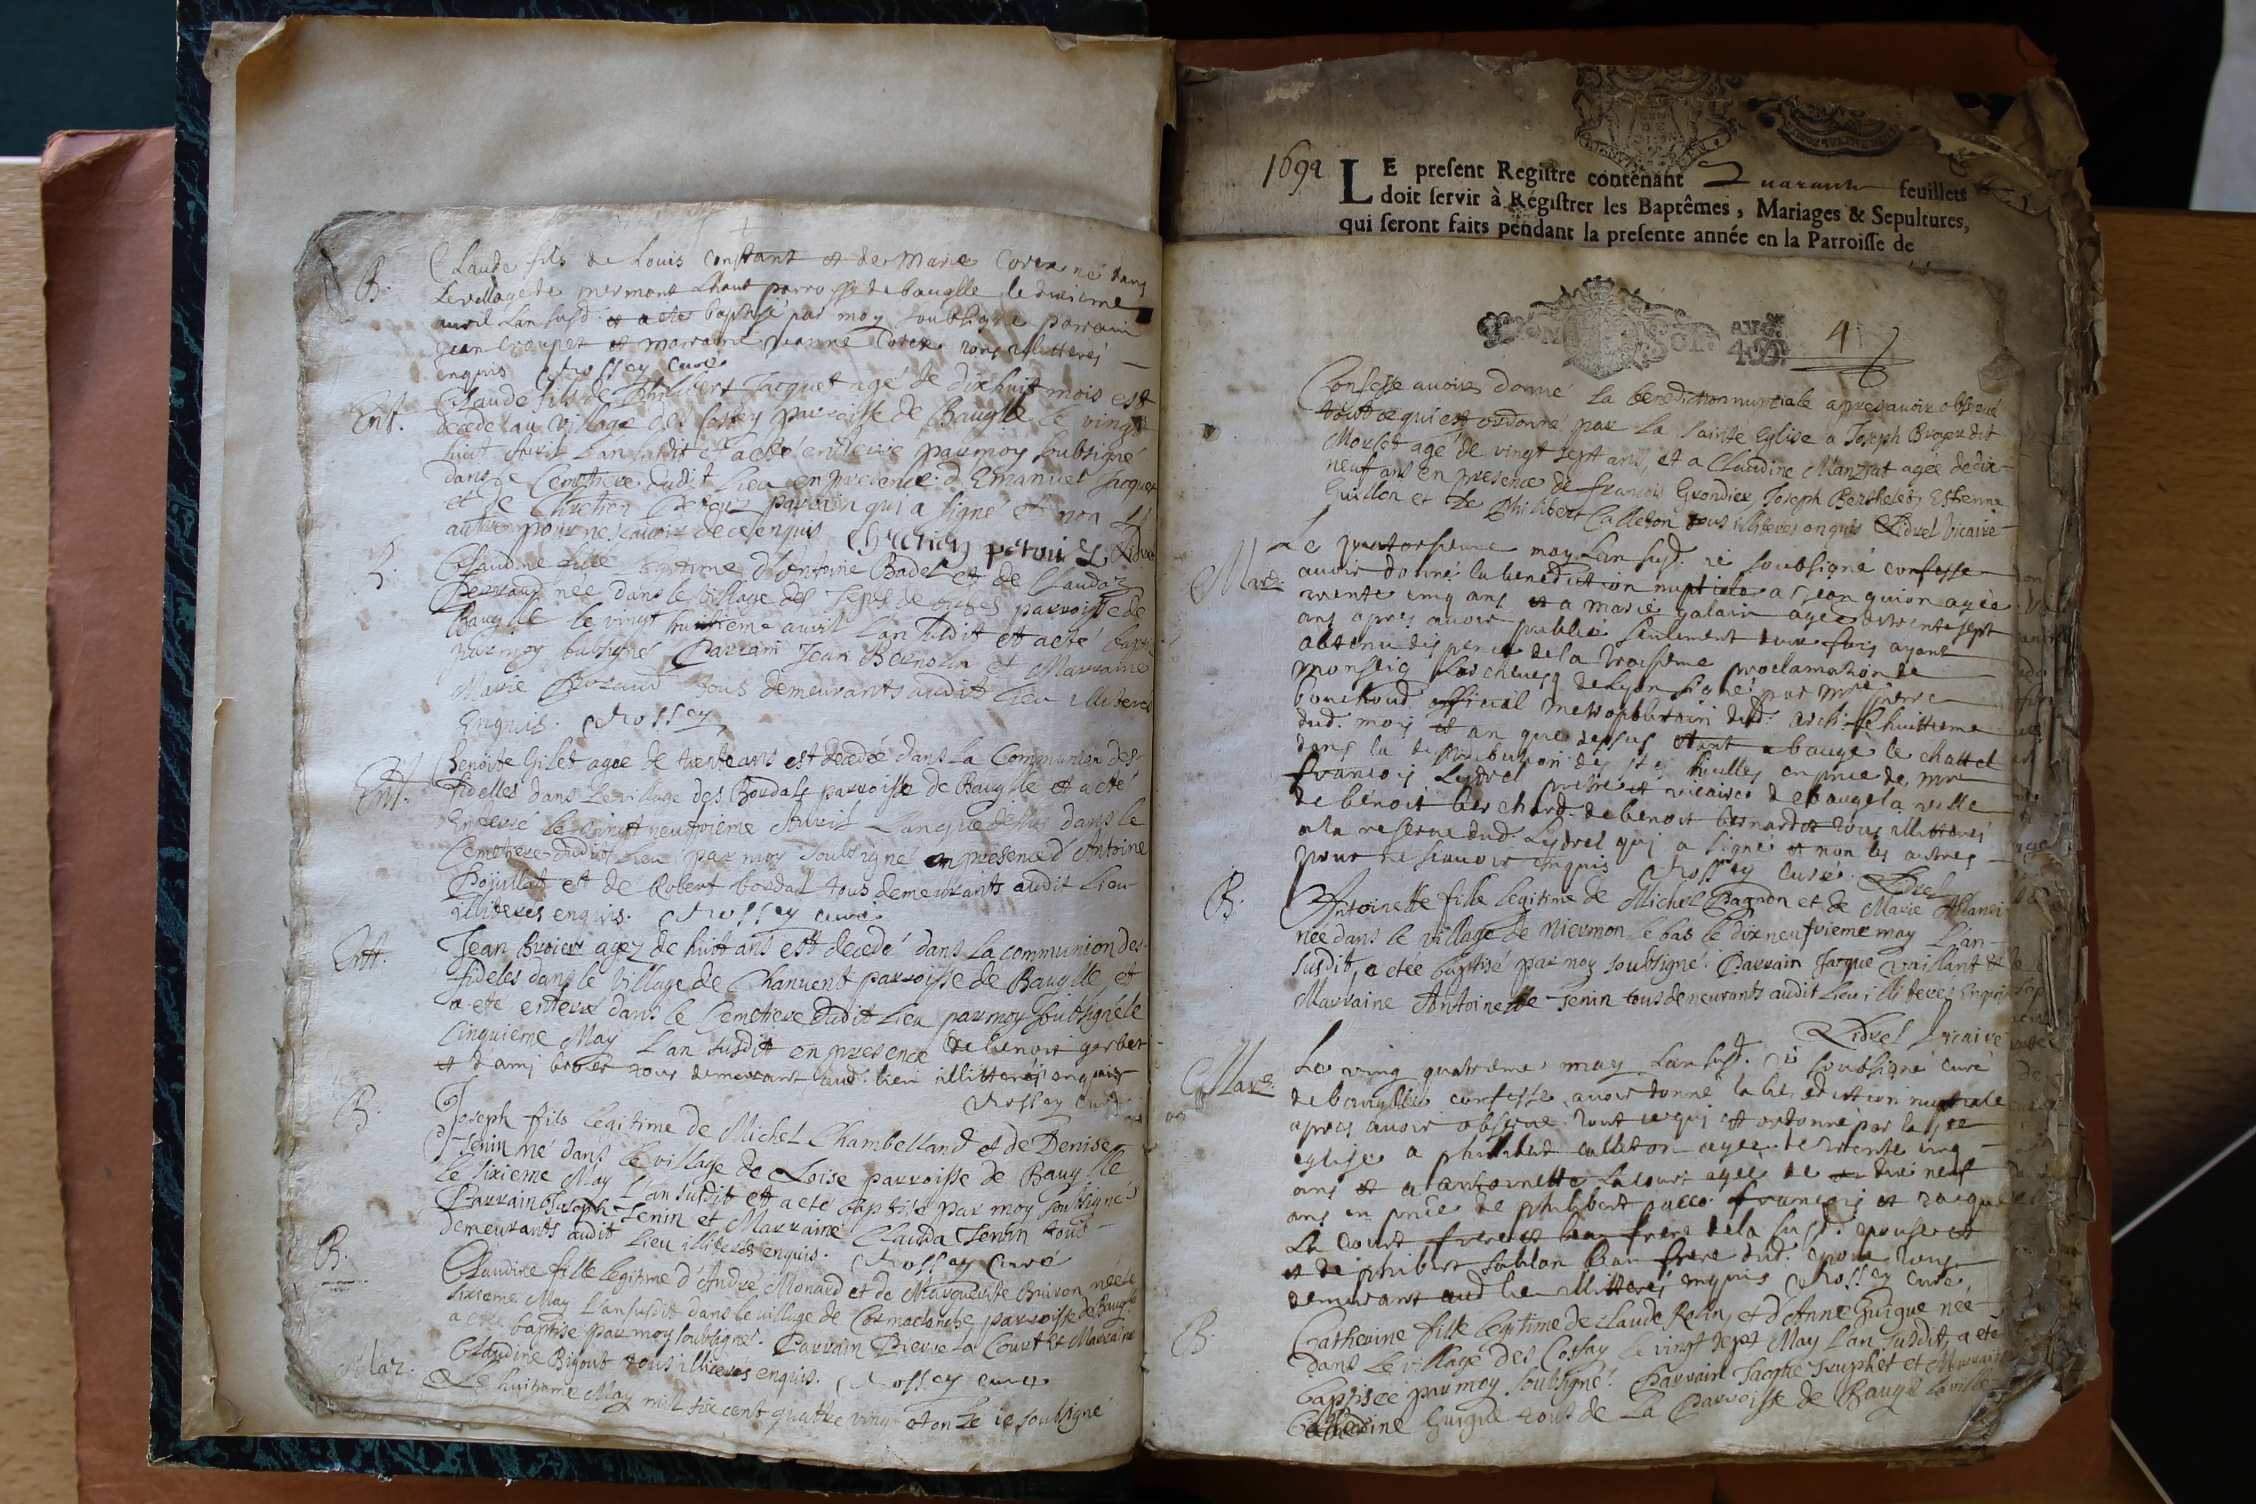 B.
Claude fils de Louis constant et de Marie né dans
Le village de mermont Lhaut parroisse de bauglle le
avril Lan susd. et a ete baptisé par moy soubsigné parrain
Jean et marraine Jeanne tous illitterés
enquis Rossey curé
Ent.
Claude fils de Philibert Jacquet agé de dixhuit mois est
decedé au Village des parroisse de Bauglle le vingt
huit Avril L'an susdit et a eté enterré par moy soubsigné
dans le Cemetiere dudit Lieu en presence d'Emanuel Jacquet
et de Chretien parrain qui a signé et non
autre pour ne scavoir de ce enquis
B.
Claudine fille legitime d'Antoine Badel et de Clauda
née dans le village des parroisse de
Bauglle le vingt huitieme avril Lan susdit et a eté
par moy soubsigné Parrain Jean et Marraine
Marie tous demeurants audit Lieu illiterés
Enquis. Rossey
Ent.
Benoite Gilet agée de ans est decedée dans la Communion des
fidelles dans le village des Bordats parroisse de Bauglle et a eté
Enterré le vingt neufvieme Avril Lan que dessus dans le
Cemetiere dudit Lieu par moy soubsigné en presence d'Antoine
et de Robert bordat tous demeurants audit Lieu
illiteres enquis. Rossey curé
Ent.
Jean agez de huitt ans est decedé dans la communion des
fideles dans le village de Chanvent parroisse de Bauglle et
a eté enterré dans le Cemetiere dudit Lieu par moy soubsigné le
Cinquieme May L'an susdit en presence de benoit
et tous demeurant aud. lieu illitterés enquis
Rossey curé
B
Joseph fils legitime de Michel Chambelland et de Denise
Jenin né dans le village de Loise parroisse de Bauglle
le sixieme May L'an susdit et a eté Baptisé par moy soubsigné
Parrain Joseph Jenin et Marraine Clauda Jenin tous
demeurants audit Lieu illiterés enquis. Rossey Curé
B.
Claudine fille legitime d'André Monard et de Marguerite née le
sixieme May L'an susdit dans le village de Cormaclanche parroisse de Baugle
a eté baptise par moy soubsigné. Parrain Pierre La Court et Marraine
Claudine Bigout tous illiteres enquis. Rossey curé
Mar.
Le huitieme May mil six cent quattre vingt et onze ie soubsigné
1692
LE present Registre contenant Quarante feuillets
doit servir à Régistrer les Baptêmes, Mariages & Sepultures,
qui seront faits pendant la presente année en la Parroisse de
4
Confesse avoir donné la benediction nuptiale apres avoir observé
tout ce qui est ordonné par la Sainte Eglise a Joseph Broyer dit
Morset agé de vingt sept ans, et a Claudine Manzat agée de dix-
neuf ans en presence de francois Grondier, Joseph Berthelet, Estienne
Guillon et de Philibert Calleton tous illiteres enquis Lidrel Vicaire
Mar.
Le quatorsieme may Lan susd. ie soubsigné confesse
avoir donné la benediction nuptiale a Jean guion agée
trente cinq ans et a marie galain agee de trente sept
ans apres avoir publié seulement deux fois ayant
obtenu dispence de la troisieme proclamation de
Monseig Larchevesq de Lyon signé par Mre pierre
official metropolitain dud. arch. le huittieme
dud. mois et an que dessus etant a bauge le chattel
dans la distribution des stes huilles en pnce de mre
francois Lydrel pretre et vicaire de baugela ville
de bénoit de benoit bernard et tous illitterés
a la reserve dud. Lydrel qui a signé et non les autres
pour ne scavoir enquis Rossey curé. Lidrel
B.
Antoinette fille legitime de Michel Pagnon et de Marie
née dans le village de Niermon le bas le dix neufvieme may L'an
susdit, a etée baptisé par moy soubsigné. Parrain Jacque Vaillant et
Marraine Antoinette Jenin tous demeurants audit Lieu illiteres Enquis
Lidrel Vicaire
Mar.
Le vingt quatrieme may Lan susd. ie soubsigné curé
de baugllee confesse avoir donné la benediction nuptiale
apres avoir observé tout ce qui est ordonné par la ste
eglise a philibert calleton agee de trente cinq
ans et a antoinette Lacourt agée de dixneuf
ans en pnce de philibert francois et Jacque
La court frere et beau frere de la susd. epouse et
et de philibert sablon beau frere dud. epoux tous
demeurant aud lieu illitterés enquis Rossey curé
B.
Catherine fille legitime de Claude Rolin, et d'Anne Guigue née
dans le village des Cossay le vingt sept May L'an susdit, a eté
baptisée par moy soubsigné. Parrain Jacque et Marraine
Guigue tous de la Parroisse de Baugé laville